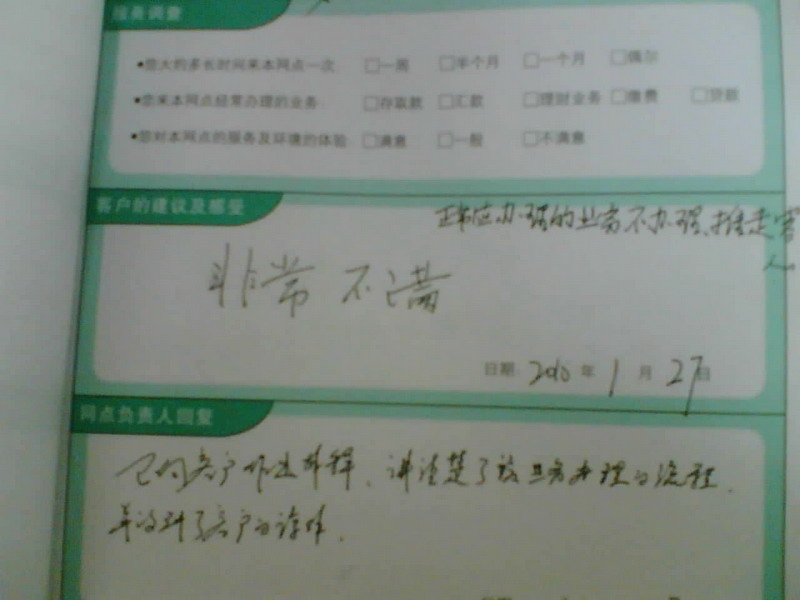 服务调查
•您大约多长时间来本网点一次 □一周 □半个月 □一个月 □偶尔
•您来本网点经常办理的业务 □存取款 □汇款 □理财业务 □缴费 □贷款
•您对本网点的服务及环境的体验 □满意 □一般 □不满意
客户的建议及感受
正常应办理的业务不办理、推走客
人
非常不满
日期 2010年1月27日
网点负责人回复
已向客户作出解释、讲清楚了该业务办理的流程.
并得到了客户的谅解.